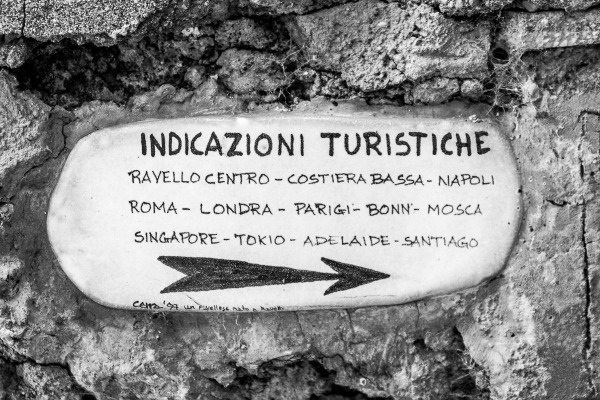 INDICAZIONI TURISTICHE
RAVELLO CENTRO - COSTIERA BASSA - NAPOLI
ROMA - LONDRA - PARIGI - BONN - MOSCA
SINGAPORE - TOKIO - ADELAIDE - SANTIAGO
un ravellese nato a